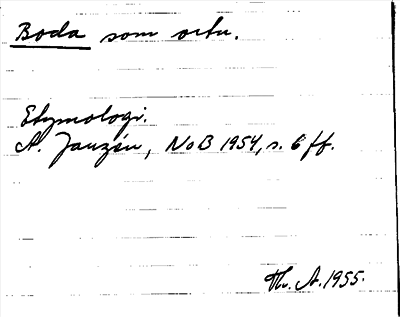 Boda som ortn.
Etymologi.
A. Janzén, NoB 1954, s. 6 ff.
Th. A. 1955.